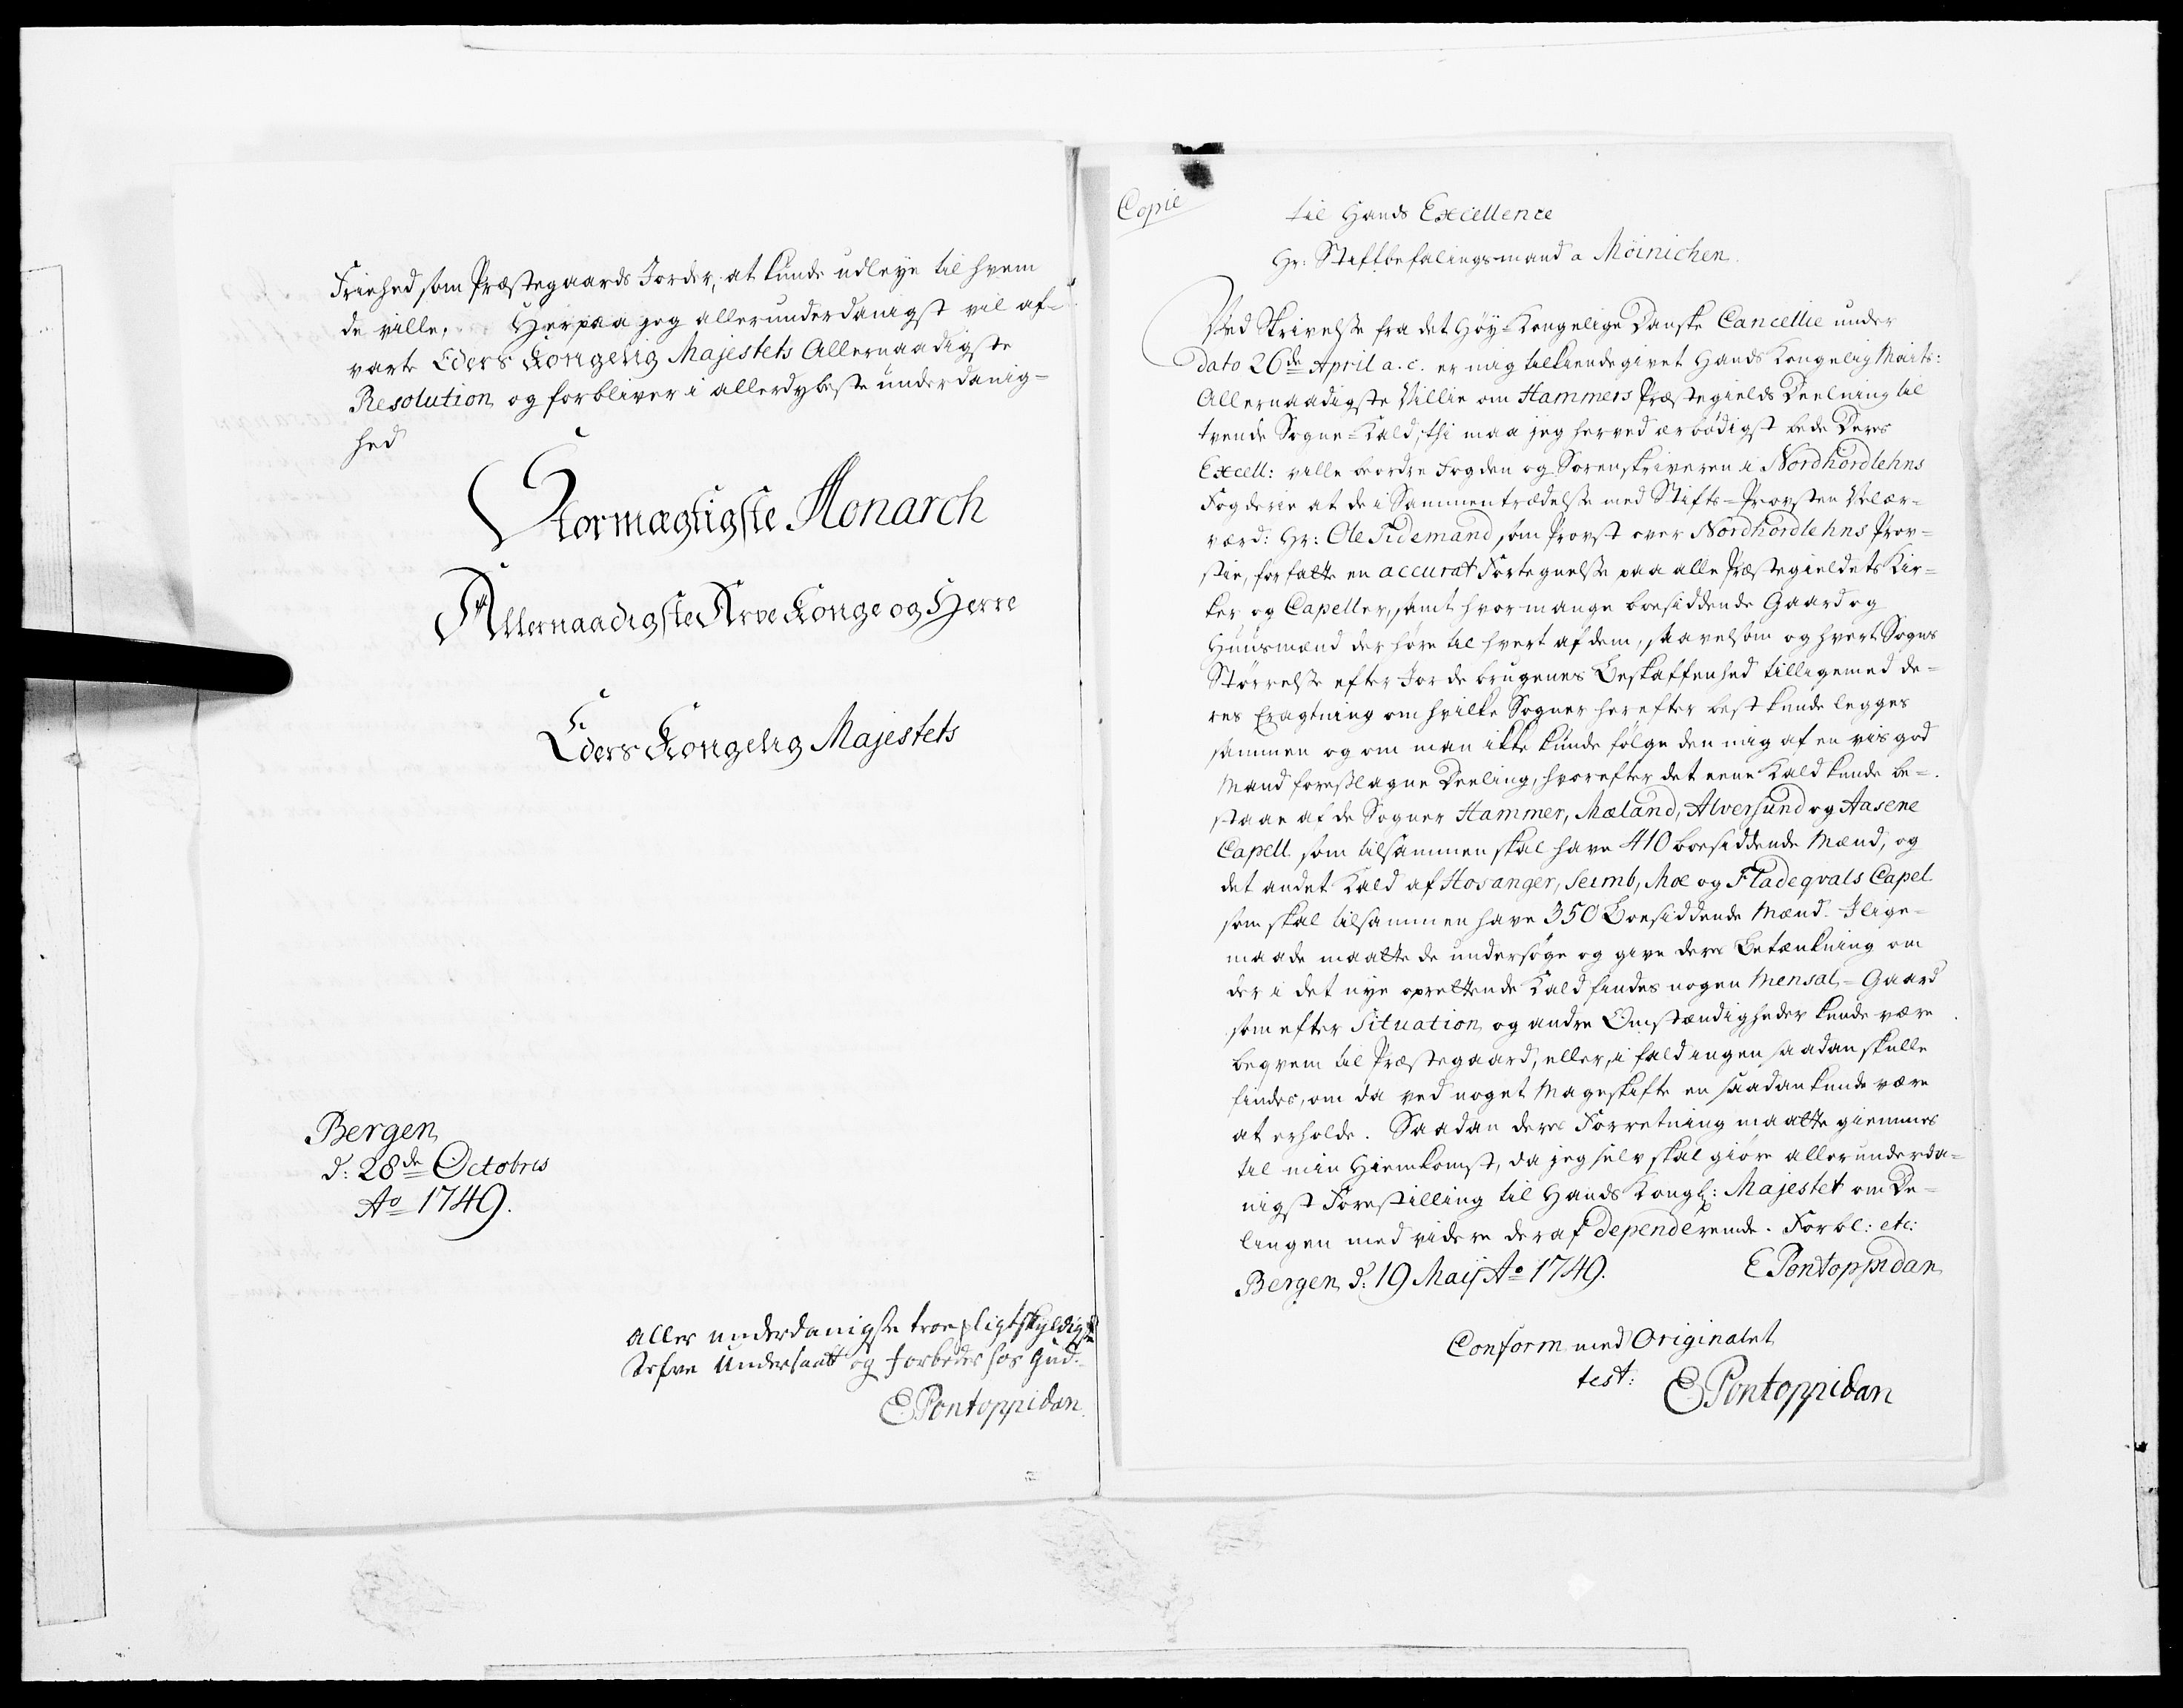 Friehed som Præstegaards Jorder, at kunde udleye til hvem
de ville. Herpaa jeg allerunderdanigst vil af-
varte Eders Kongelig Majestets Allernaadigste
Resolution og forbliver i allerdybeste underdanig-
hed
Stormægtigste Monarch
Allernaadigste Arve Konge og Herre
Eders Kongelig Majestets
Bergen
d: 28de Octobris
Ao 1749.
Aller underdanigste troepligtskyldigste
Arfve Undersaatt og forbeder hos Gud.
E Pontoppidan.
Copie
til Hands Excellence
Hr: Stiftbefalingsmand a Möinichen.
Ved Skrivelse fra det Høy-Kongelige Danske Cancellie under
dato 26de April a. c. er mig tilkiendegivet Hands Kongelig Maits:
Allernaadigste Villie om Hammers Præstegields Deelning til
tvende Sogne-Kald, thi maa jeg herved ærbödigst bede Deres
Excell: ville beordre Fogden og Sorenskriveren i Nordhordlehns
Fogderie at de i Sammentrædelse med Stifts-Provsten Velær-
værd: Hr: Ole Tidemand, som Provst over Nordhordlehns Prov-
stie, forfatte en accurat Fortegnelse paa alle Præstegieldets Kir-
ker og Capeller, samt hvor mange boesiddende Gaard og
Huusmænd der höre til hvert af dem, saavelsom og hvert Sogns
Störrelse efter Jorde brugenes Beskaffenhed tilligemed de-
res Eragtning om hvilke Sogner herefter best kunde legges
sammen og om man ikke kunde fölge den mig af en vis god
Mand foreslagne Deeling, hvorefter det eene Kald kunde be-
staae af de Sogner Hammer, Mæland, Alversund og Aasene
Capell som tilsammen skal have 410 boesiddende Mænd, og
det andet Kald af Hosanger, Seimb, Moe og Fladeqvals Capel
som skal tilsammen have 350 Boesiddende Mænd. Ilige-
maade maatte de undersöge og give deres Betænkning om
der i det nye oprettende Kald findes nogen Mensal-Gaard
som efter Situation og andre Omstændigheder kunde være
beqvem til Præstegaard, eller, i fald ingen saadan skulle
findes, om da ved noget Mageskifte en saadan kunde være
at erholde. Saadan deres Forretning maatte giemmes
til min Hiemkomst, da jeg selv skal giöre allerunderda-
nigst Forestilling til Hands Kongl: Majestet om De-
lingen med videre deraf dependerende. Forbl: etc:
Bergen d: 19 Maij Ao 1749. E Pontoppidan
Conform med Originalet
test: E Pontoppidan